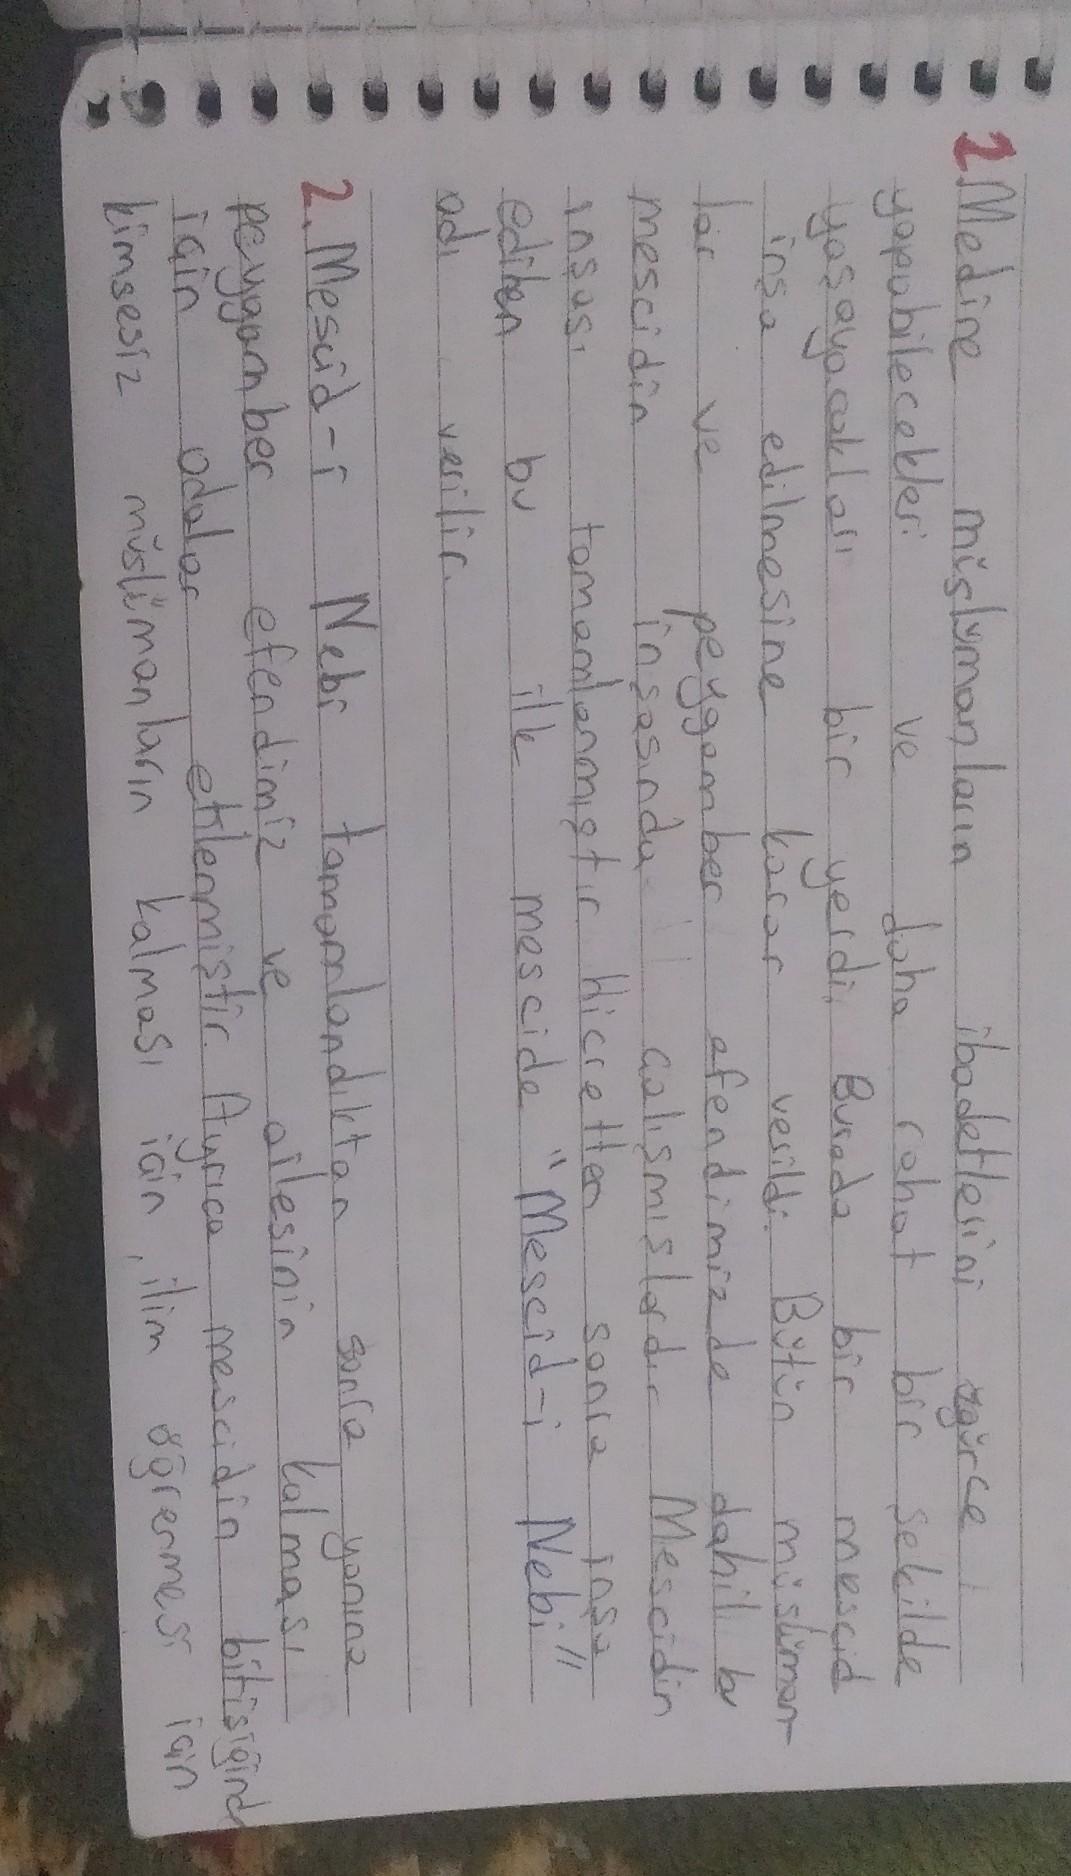 1 Medine müslümanların ibadetlerini özgürce
yapabilecekleri ve daha rahat bir sekilde
yaşayacakları bir yerdi, Burada bir mescid
inşa edilmesine karar verildi. Bütün müslüman-
lar ve peygamber efendimizde dahil bu
mescidin inşasında çalışmışlardır Mescidin
inşası tamamlanmıştır Hicretten sonra inşa
edilen bu ilk mescide "Mescid-i Nebi"
adı verilir.
2. Mescid-i Nebi tamamlandıktan sonra yanına
peygamber efendimiz ve ailesinin kalması
için odalar eklenmiştir. Ayrıca mescidin bitişiğind
kimsesiz müslümanların kalması için, ilim öğrenmesi için